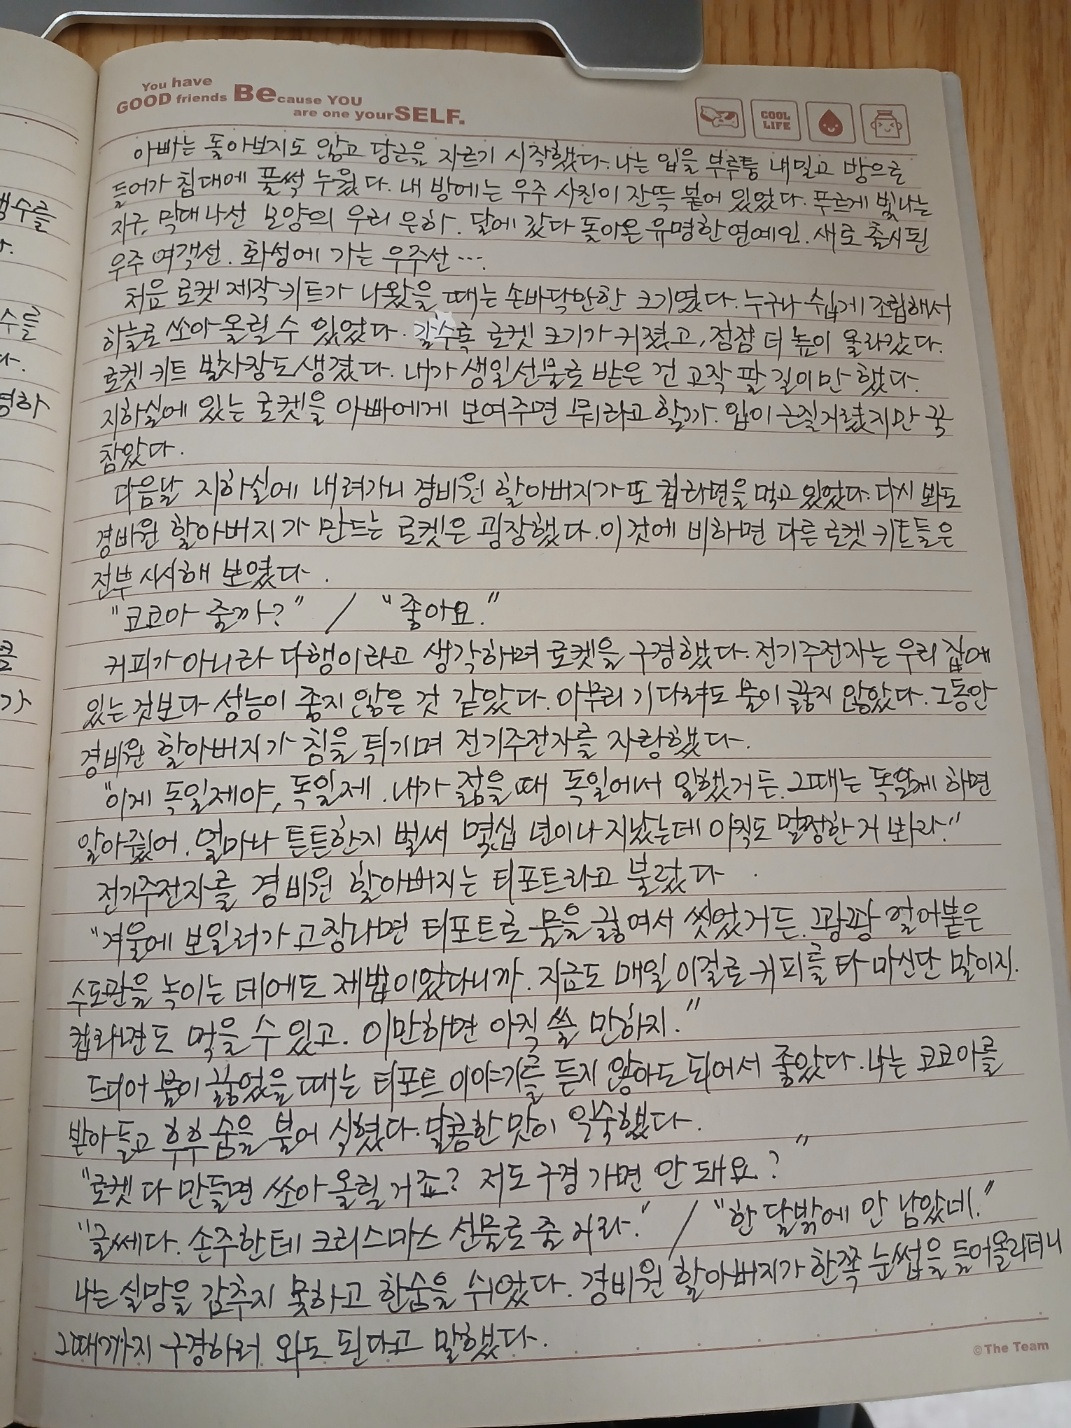 You have
GOOD friends Because YOU
are one yourSELF.
COOL LIFE
아빠는 돌아보지도 않고 당근을 자르기 시작했다. 나는 입을 부루퉁 내밀고 방으로
들어가 침대에 풀썩 누웠다. 내 방에는 우주 사진이 잔뜩 붙어 있었다. 푸르게 빛나는
지구, 막대나선 모양의 우리 은하. 달에 갔다 돌아온 유명한 연예인. 새로 출시된
우주 여객선. 화성에 가는 우주선….
처음 로켓 제작 키트가 나왔을 때는 손바닥만한 크기였다. 누구나 쉽게 조립해서
하늘로 쏘아 올릴 수 있었다. 갈수록 로켓 크기가 커졌고, 점점 더 높이 올라갔다.
로켓 키트 발사장도 생겼다. 내가 생일선물로 받은 건 고작 팔 길이만 했다.
지하실에 있는 로켓을 아빠에게 보여주면 뭐라고 할까. 입이 근질거렸지만 꾹
참았다.
다음날 지하실에 내려가니 경비원 할아버지가 또 컵라면을 먹고 있었다. 다시 봐도
경비원 할아버지가 만드는 로켓은 굉장했다. 이것에 비하면 다른 로켓 키트들은
전부 시시해 보였다.
"코코아 줄까?" / "좋아요."
커피가 아니라 다행이라고 생각하며 로켓을 구경했다. 전기주전자는 우리 집에
있는 것보다 성능이 좋지 않은 것 같았다. 아무리 기다려도 물이 끓지 않았다. 그동안
경비원 할아버지가 침을 튀기며 전기주전자를 자랑했다.
"이게 독일제야, 독일제. 내가 젊을 때 독일에서 일했거든. 그때는 독일제 하면
알아줬어. 얼마나 튼튼한지 벌써 몇십 년이나 지났는데 아직도 멀쩡한 거 봐라."
전기주전자를 경비원 할아버지는 티포트라고 불렀다.
"겨울에 보일러가 고장나면 티포트로 물을 끓여서 씻었거든. 꽝꽝 얼어붙은
수도관을 녹이는 데에도 제법이었다니까. 지금도 매일 이걸로 커피를 타 마신단 말이지.
컵라면도 먹을 수 있고. 이만하면 아직 쓸 만하지."
드디어 물이 끓었을 때는 티포트 이야기를 듣지 않아도 되어서 좋았다. 나는 코코아를
받아 들고 후후 숨을 불어 식혔다. 달콤한 맛이 익숙했다.
"로켓 다 만들면 쏘아 올릴 거죠? 저도 구경 가면 안 돼요?"
"글쎄다. 손주한테 크리스마스 선물로 줄 거라." / "한 달밖에 안 남았네."
나는 실망을 감추지 못하고 한숨을 쉬었다. 경비원 할아버지가 한쪽 눈썹을 들어올리더니
그때까지 구경하러 와도 된다고 말했다.
©The Team